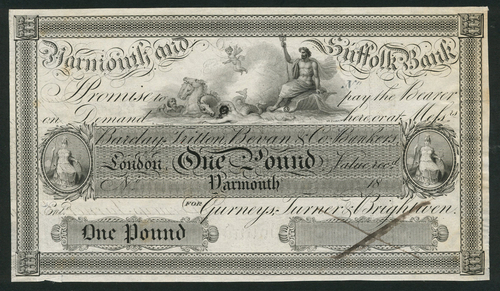 Yarmouth and Suffolk Bank
No
I Promise to pay the Bearer
on Demand here, or at Messrs
Barclay, Tritton, Bevan & Co. Bankers
London, One Pound Value recd.
No Yarmouth 18
FOR Gurneys, Turner & Brightwen.
One Pound